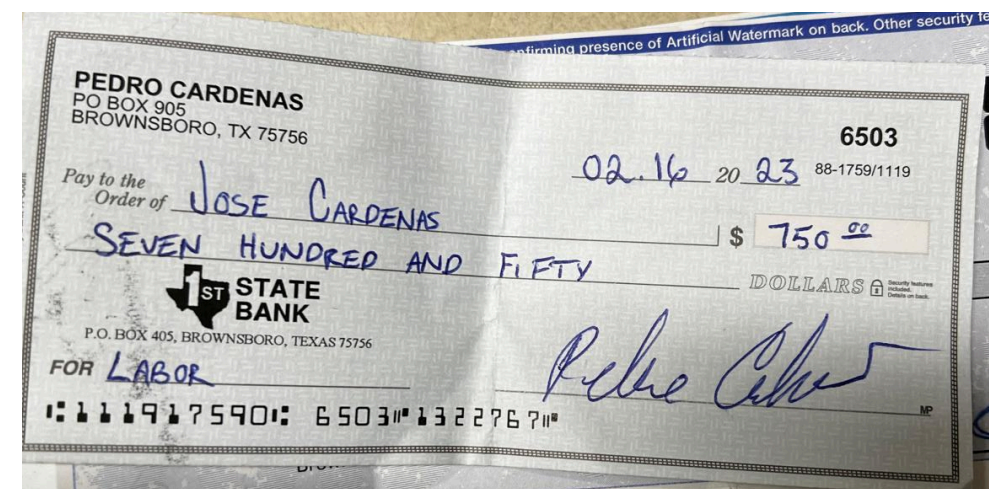 nfirming presence of Artificial Watermark on back. Other security fe
PEDRO CARDENAS
PO BOX 905
BROWNSBORO, TX 75756
6503
02.16 20 23 88-1759/1119
Pay to the
Order of JOSE CARDENAS
$ 750 00
SEVEN HUNDRED AND FIFTY
DOLLARS Security features included. Details on back.
1ST STATE
BANK
P.O. BOX 405, BROWNSBORO, TEXAS 75756
FOR LABOR
Pedro Cardenas
MP
⑆111917590⑆ 6503⑈1322767⑈